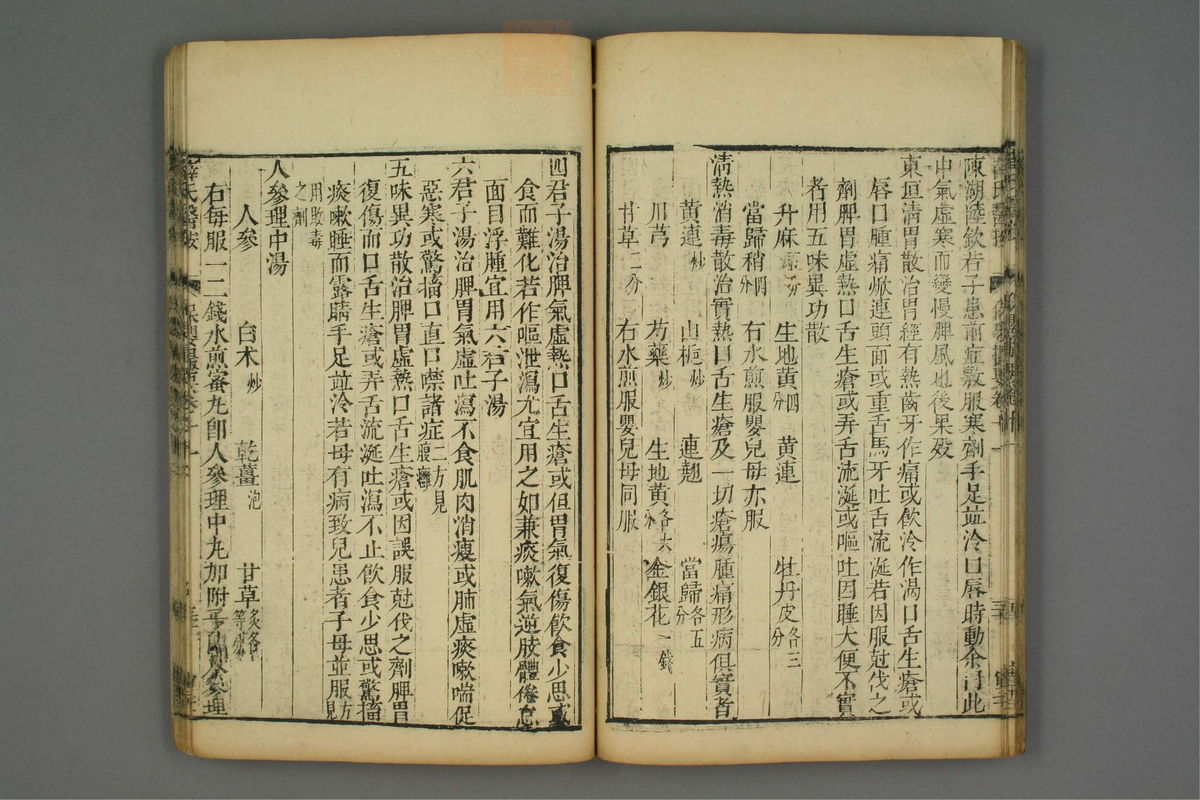 陳湖陸欽若子患前症數服寒劑手足並冷口唇時動余謂此
中氣虛寒而變慢脾風也後果歿
東垣清胃散治胃經有熱齒牙作痛或飲冷作渴口舌生瘡或
唇口腫痛焮連頭面或重舌馬牙吐舌流涎若因服尅伐之
劑脾胃虛熱口舌生瘡或弄舌流涎或嘔吐因睡大便不實
者用五味異功散
升麻 生地黃四分 黃連 牡丹皮各三分
當歸稍四分 右水煎服嬰兒母亦服
清熱消毒散治實熱口舌生瘡及一切瘡瘍腫痛形病俱實者
黃連炒 山梔炒 連翹 當歸各五分
川芎 芍藥炒 生地黃各六分 金銀花一錢
甘草二分 右水煎服嬰兒母同服
四君子湯治脾氣虛熱口舌生瘡或但胃氣復傷飲食少思或
食而難化若作嘔泄瀉尤宜用之如兼痰嗽氣逆肢體倦怠
面目浮腫宜用六君子湯
六君子湯治脾胃氣虛吐瀉不食肌肉消瘦或肺虛痰嗽喘促
惡寒或驚搐口直口噤諸症二方見腹癰
五味異功散治脾胃虛熱口舌生瘡或因誤服尅伐之劑脾胃
復傷而口舌生瘡或弄舌流涎吐瀉不止飲食少思或驚搐
痰嗽睡而露睛手足並冷若母有病致兒患者子母並服方見
用敗毒之劑
人參理中湯
人參 白朮炒 乾薑泡 甘草炙各等分
右每服一二錢水煎蜜丸卽人參理中丸加附子卽人參理
薛氏醫按